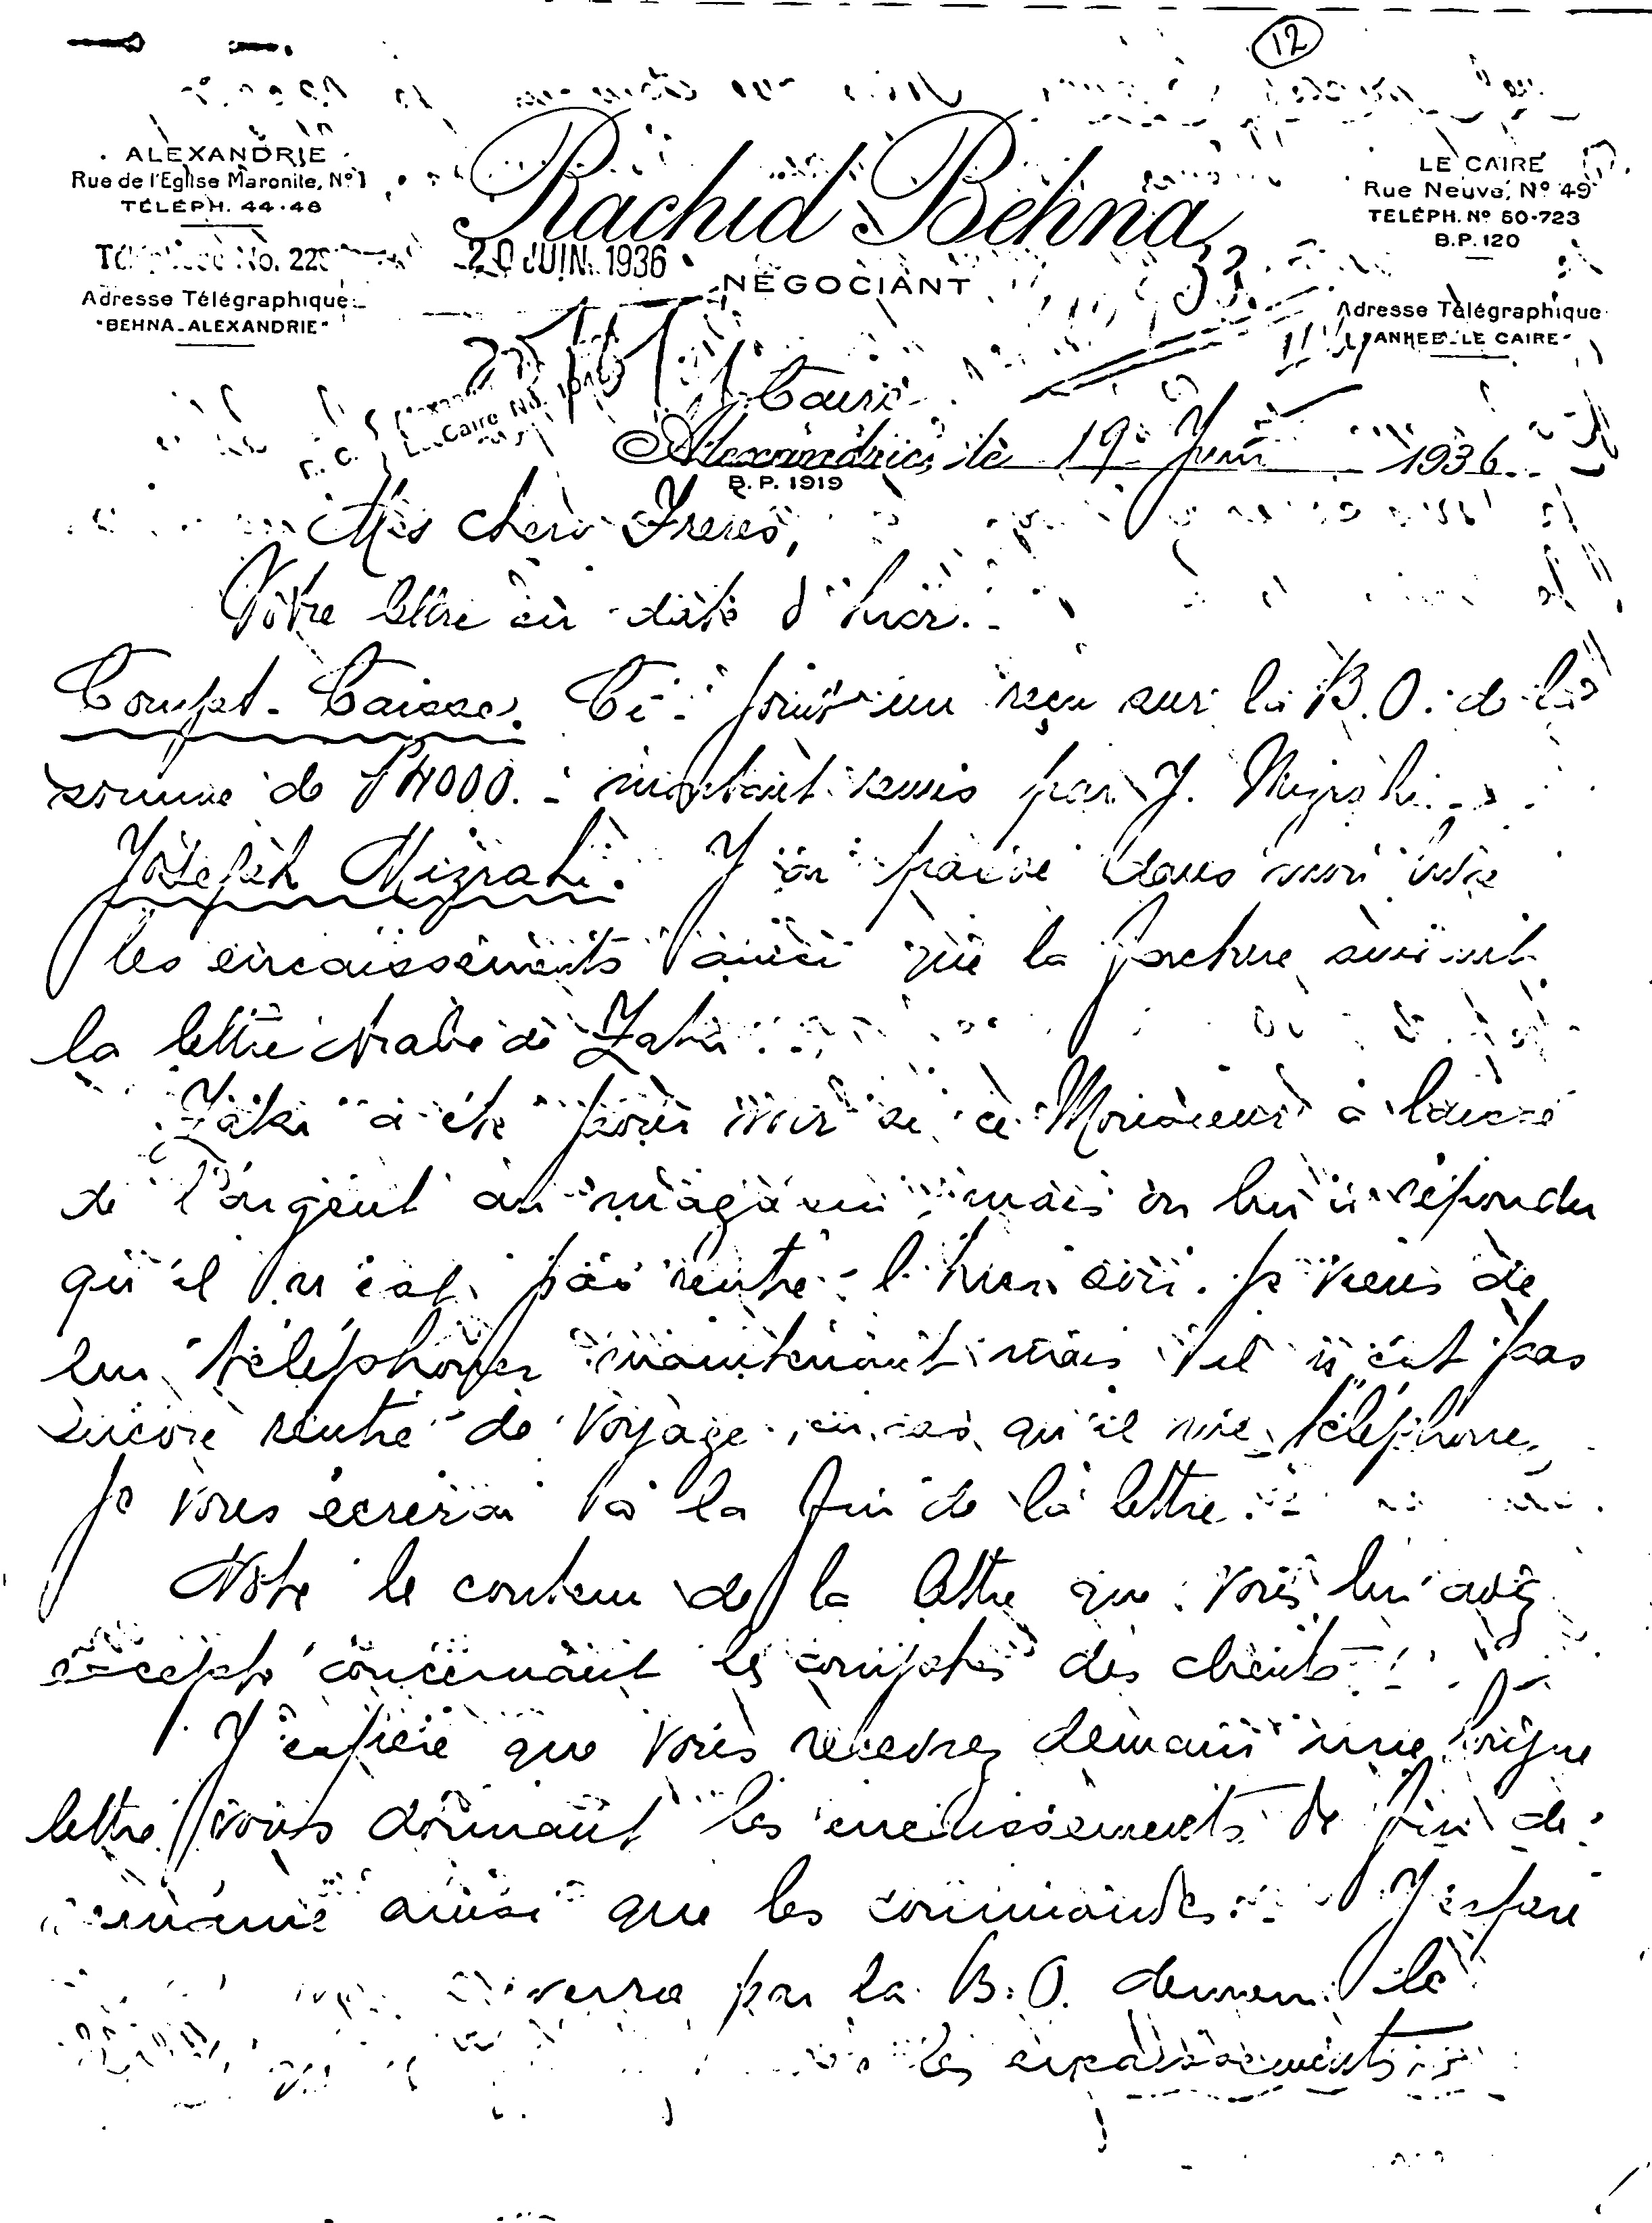 12
ALEXANDRIE
Rue de l'Eglise Maronite, Nº 1
TÉLÉPH. 44-48
Adresse Télégraphique:
"BEHNA-ALEXANDRIE"
Rachid Behna
20 JUIN 1936
NÉGOCIANT
LE CAIRE
Rue Neuve, Nº 49
TELÉPH. Nº 50-723
B.P. 120
Adresse Télégraphique
LE CAIRE
Caire
Alexandrie, le 19 Juin 1936
B.P. 1919
Mes chers Freres,
Votre lettre en date d'hier.
Compt-Caisse. Ci-joint un reçu sur la B.O. de la
somme de 4000. montant remis par J. Mizrahi.
Joseph Mizrahi. J'ai dans
les encaissements ainsi que la facture suivant
la lettre Arabe de Zaki
Zaki a été pour voir si ce Monsieur a laissé
de l'argent au magasin mais on lui a répondu
qu'il n'est pas rentré hier soir. Je viens de
lui téléphoner maintenant mais il n'est pas
encore rentré de voyage, en cas qu'il me téléphone,
je vous écrerai à la fin de la lettre.
Noté le contenu de la lettre que vous lui avez
concernant les comptes des clients
J'espère que vous recevrez demain une longue
lettre vous donnant les encaissements de fin de
semaine ainsi que les commandes. J'espère
verse par la B.O. demain le
les encaissements